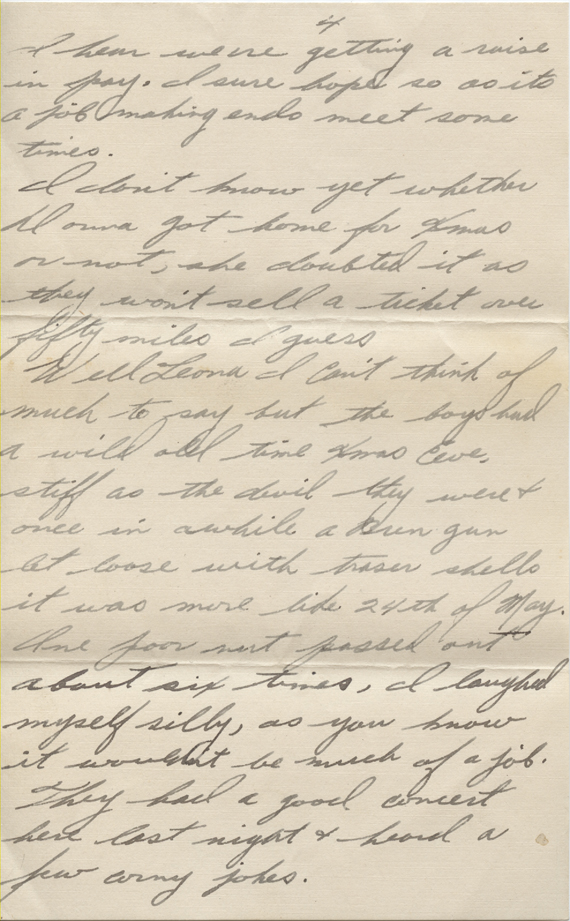 4
I hear we're getting a raise
in pay. I sure hope so as its
a job making ends meet some
times.
I don't know yet whether
Donna got home for Xmas
or not, she doubted it as
they won't sell a ticket over
fifty miles I guess
Well Leona I can't think of
much to say but the boys had
a wild old time Xmas Eve,
stiff as the devil they were &
once in awhile a Bren gun
let loose with traser shells
it was more like 24th of May.
One poor nut passed out
about six times, I laughed
myself silly, as you know
it wouldn't be much of a job.
They had a good concert
here last night & heard a
few corny jokes.